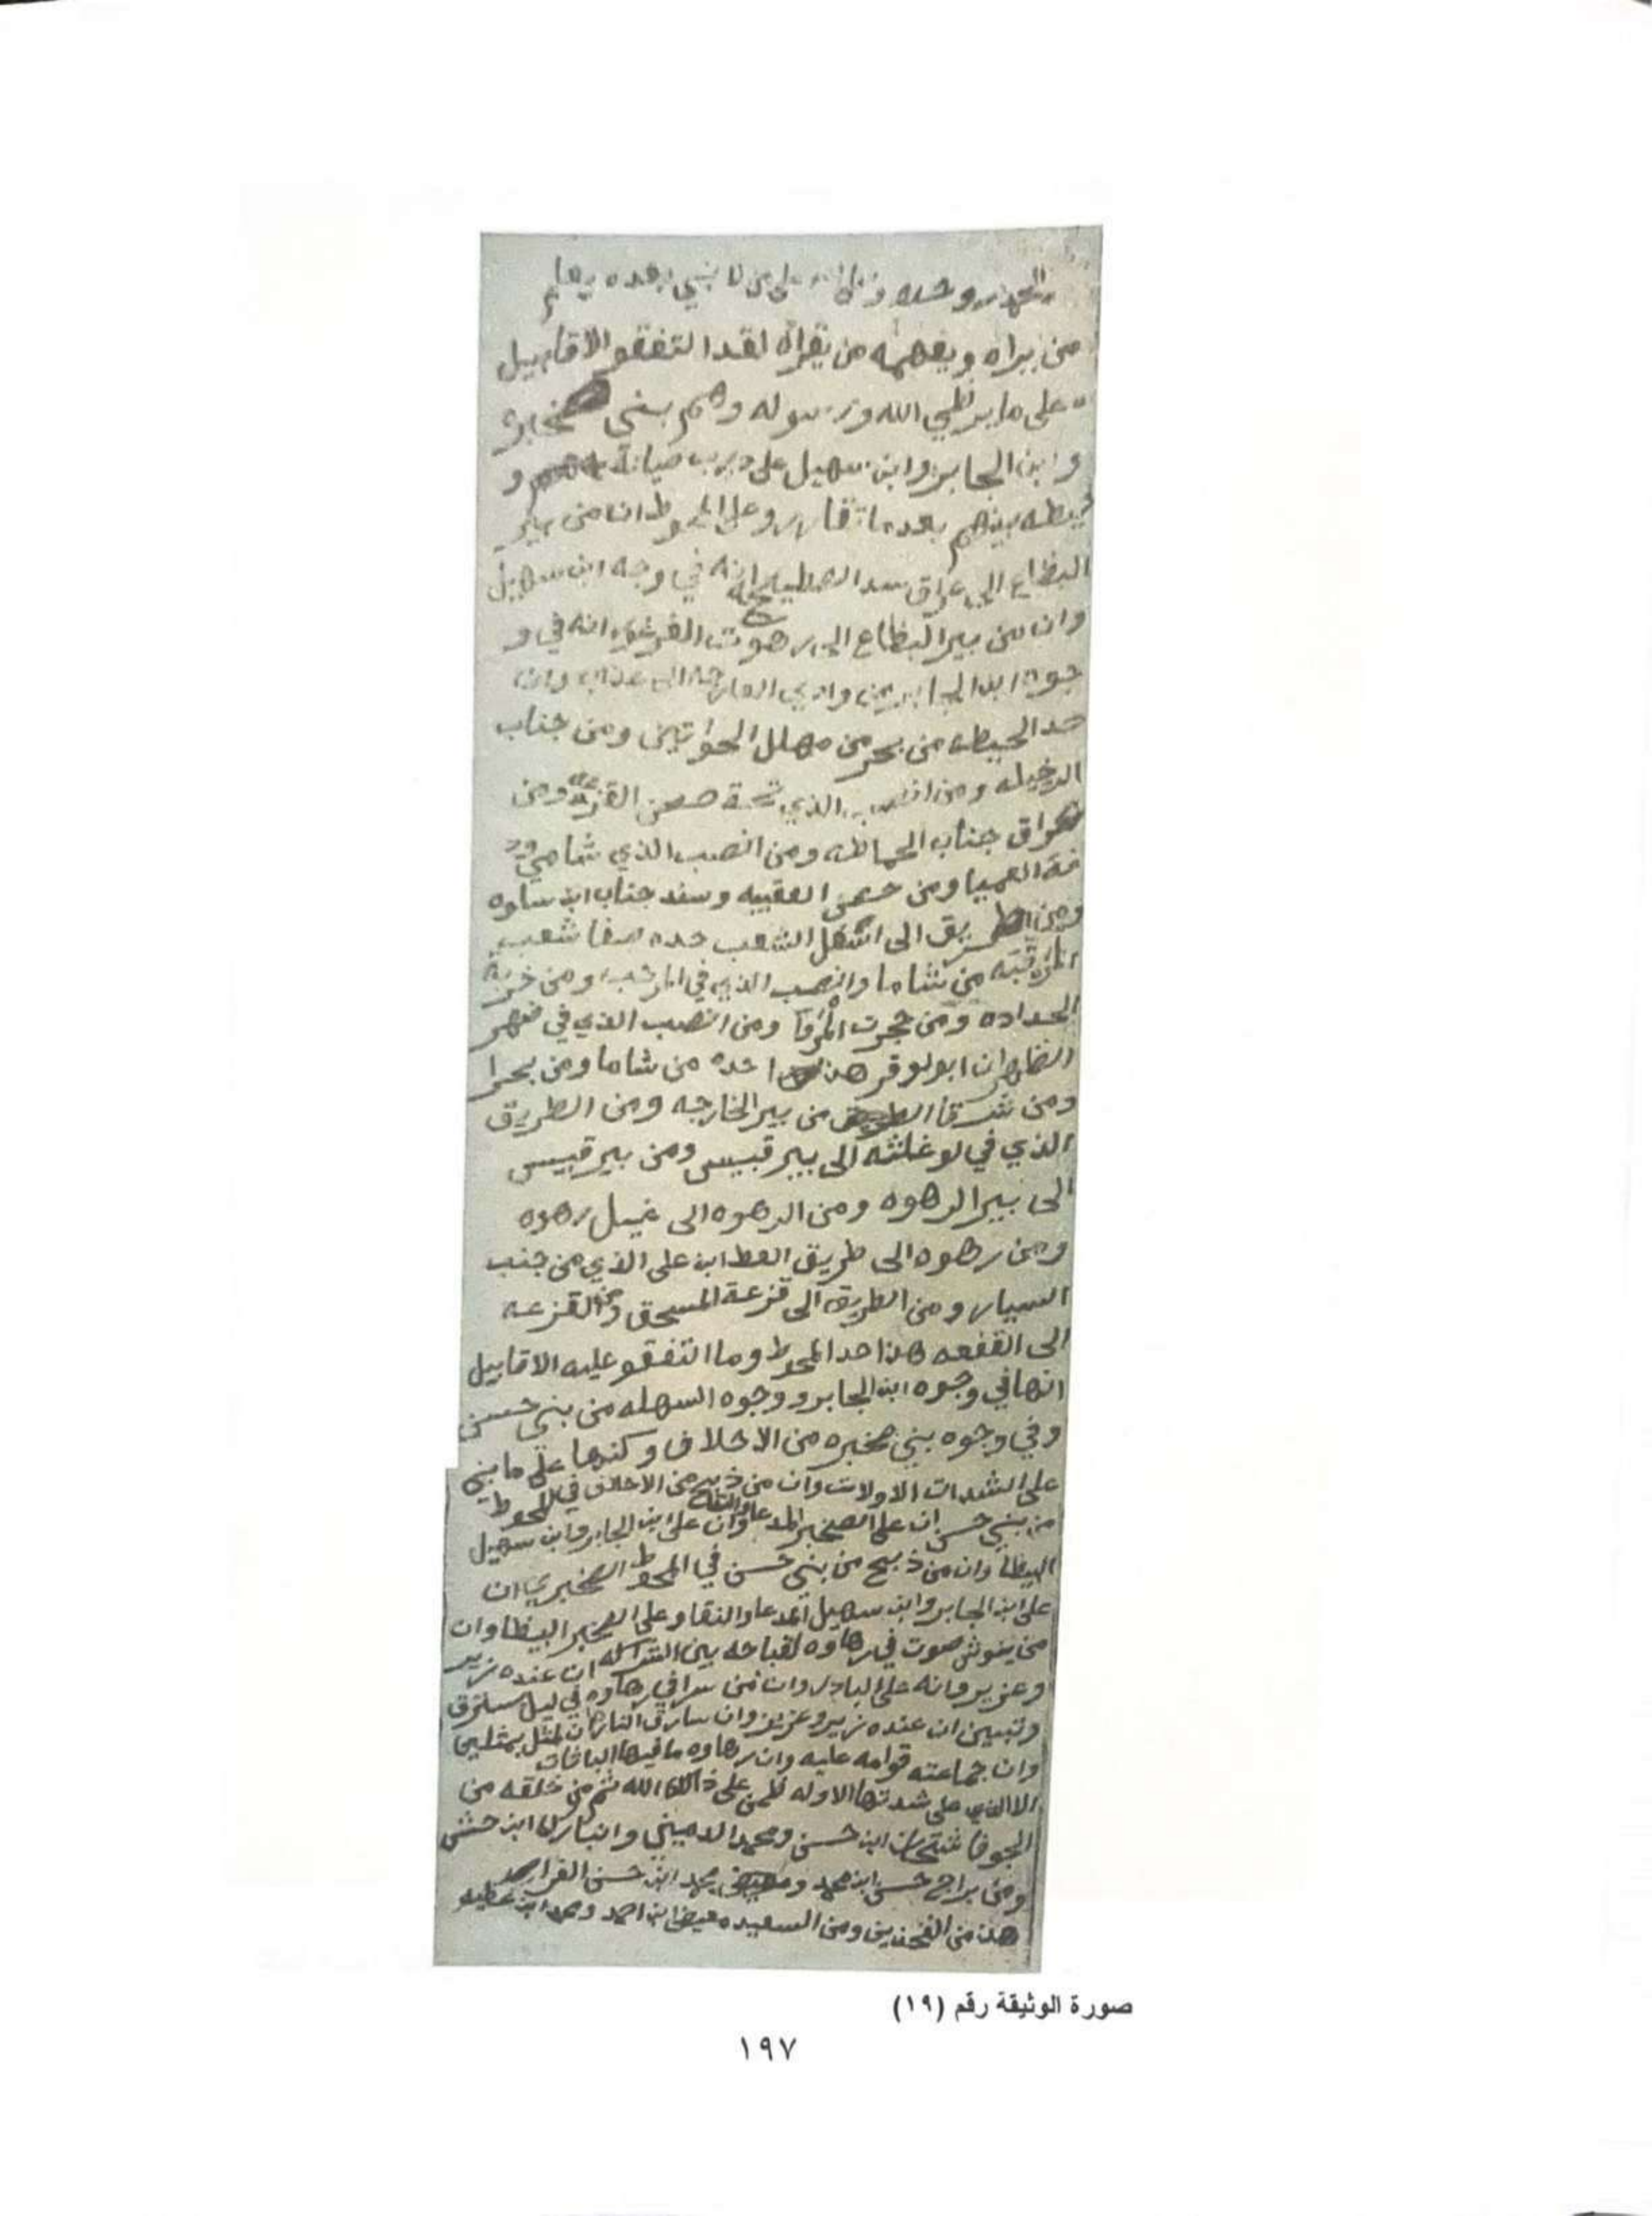 الحمد لله وحده على من لا نبي بعده يعلم
من يراه ويفهمه من يقراه لقد التفقو الاقابيل
على ما يرظي الله ورسوله وهم بني صخيره
وابن الجابر وابن سهيل على درب صيانة و
حيطه بينهم بعدما وعلى المحوط ان من بير
البظاع الى عراق سد انه في وجه ابن سهيل
وان من بير البظاع الى رهوت انه في و
جوه ابن الجابر من وادي الى وان
حد الحيطه من بحر من مهلل الحواتين ومن جناب
الرخيله ومن انصب الذي تحت صحن القزعه ومن
عراق جناب الحماطه ومن انصب الذي شامي
العميا ومن حصن العقيبه وسند جناب ابن ساوه
ومن الطريق الى اسفل الشعب حده صفا شعب
من شاما وانصب الذي في المرقب ومن
الحداده ومن حجرت المرفا ومن انصب الذي في ظهر
الظهران ابو لوقر هذا حده من شاما ومن بحرا
ومن شرقا من بير الخارجه ومن الطريق
الذي في لوغلثه الى بير قبيس ومن بير قبيس
الى بير الرهوه ومن الرهوه الى غيل رهوه
ومن رهوه الى طريق العط ابن علي الذي من جنب
السيار ومن الطريق الى قزعة المسحق ومن القزعه
الى القفعه هذا حد المحوط وما التفقو عليه الاقابيل
انها في وجوه ابن الجابر ووجوه السهله من بني حسن
وفي وجوه بني صخيره من الاحلاف وكندها على ما بني
على الشدات الاولات وان من ذبح من الاحلاف في المحوط
من بني حسن ان على الصخير المدعا والنقا وان على ابن الجابر وابن سهيل
البيظا وان من ذبح من بني حسن في المحوط الصخيري ان
على ابن الجابر وابن سهيل المدعا والنقا وعلى الصخير البيظا وان
من ينوش صوت في رهاوه لقباحه بين الشراكه ان عنده زير
وعزير وانه على البادر وان من سرا في رهاوه في ليل
وتبين ان عنده زير وعزير وان سارق النار ان لمثل بمثلين
وان جماعته قوامه عليه وان رهاوه ما فيها
الا الذي على شدتها الاوله ظمن على ذالك الله ثم من خلقه من
الجوفا ابن حسن ومحمد الدميني وانبارك ابن حسن
ومن براح حسن ابن محمد ومحمد ابن حسن
هذن من ومن السعيده معيض ابن احمد ومحمد ابن عطيه
صورة الوثيقة رقم (١٩)
١٩٧